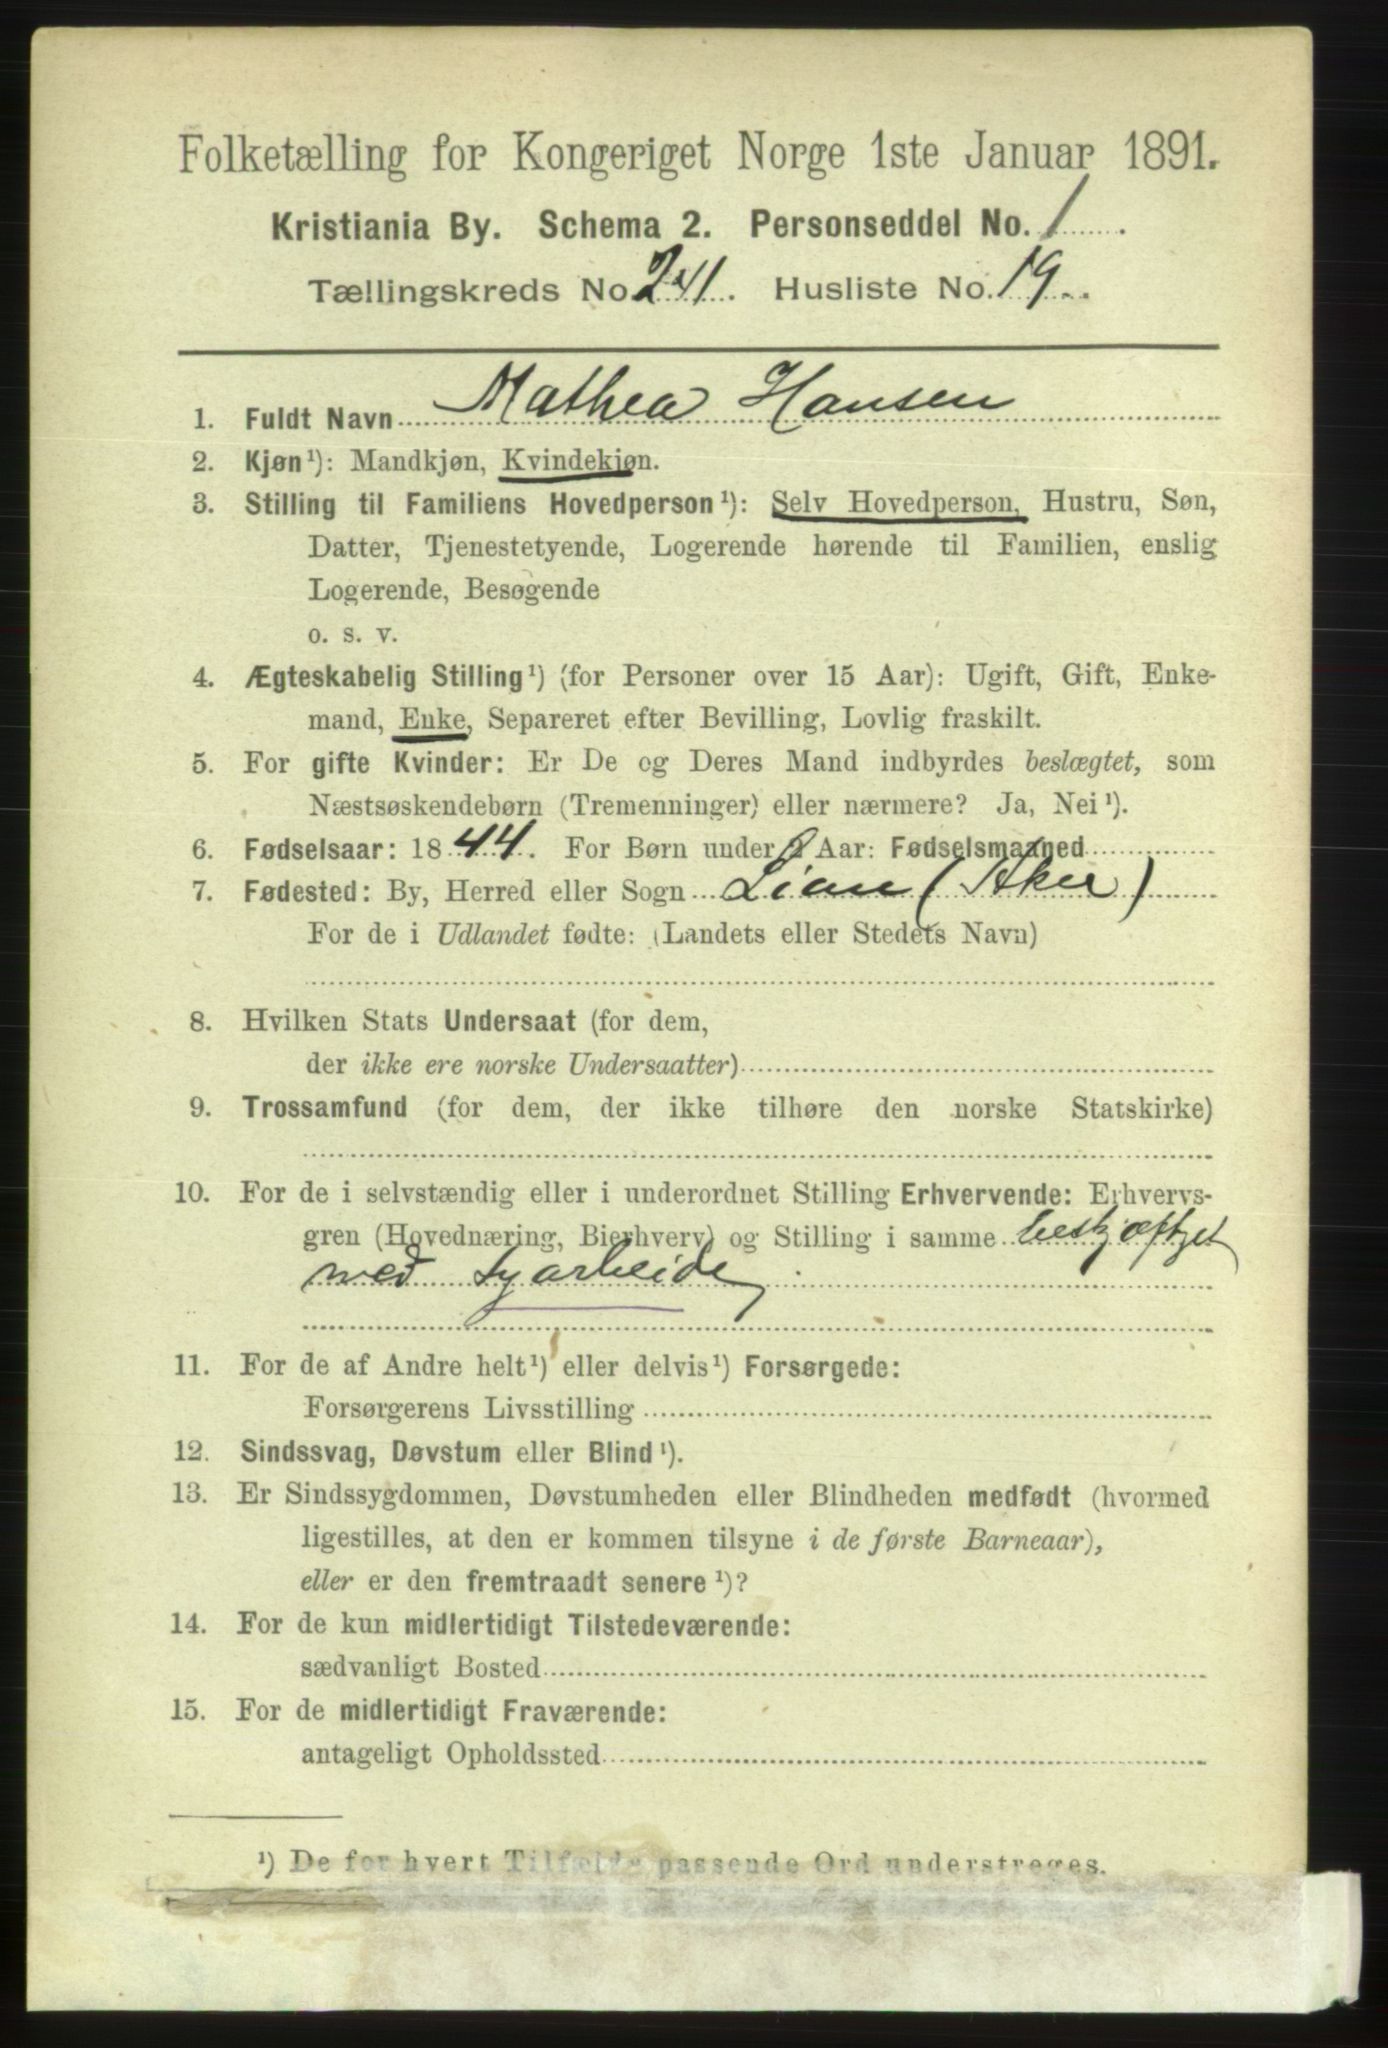 Folketælling for Kongeriget Norge 1ste Januar 1891.
Kristiania By. Schema 2. Personseddel No. 1
Tællingskreds No. 241. Husliste No. 19
1. Fuldt Navn Mathea Hansen
2. Kjøn¹): Mandkjøn, Kvindekjøn.
3. Stilling til Familiens Hovedperson¹): Selv Hovedperson, Hustru, Søn,
Datter, Tjenestetyende, Logerende hørende til Familien, enslig
Logerende, Besøgende
o. s. v.
4. Ægteskabelig Stilling¹) (for Personer over 15 Aar): Ugift, Gift, Enke-
mand, Enke, Separeret efter Bevilling, Lovlig fraskilt.
5. For gifte Kvinder: Er De og Deres Mand indbyrdes beslægtet, som
Næstsøskendebørn (Tremenninger) eller nærmere? Ja, Nei¹).
6. Fødselsaar: 1844. For Børn under 2 Aar: Fødselsmaaned
7. Fødested: By, Herred eller Sogn Lian (Aker)
For de i Udlandet fødte: (Landets eller Stedets Navn)
8. Hvilken Stats Undersaat (for dem,
der ikke ere norske Undersaatter)
9. Trossamfund (for dem, der ikke tilhøre den norske Statskirke)
10. For de i selvstændig eller i underordnet Stilling Erhvervende: Erhvervs-
gren (Hovednæring, Bierhverv) og Stilling i samme beskjæftiget
med Syarbeide
11. For de af Andre helt¹) eller delvis¹) Forsørgede:
Forsørgerens Livsstilling
12. Sindssvag, Døvstum eller Blind¹).
13. Er Sindssygdommen, Døvstumheden eller Blindheden medfødt (hvormed
ligestilles, at den er kommen tilsyne i de første Barneaar),
eller er den fremtraadt senere¹)?
14. For de kun midlertidigt Tilstedeværende:
sædvanligt Bosted
15. For de midlertidigt Fraværende:
antageligt Opholdssted
¹) De for hvert Tilfælde passende Ord understreges.